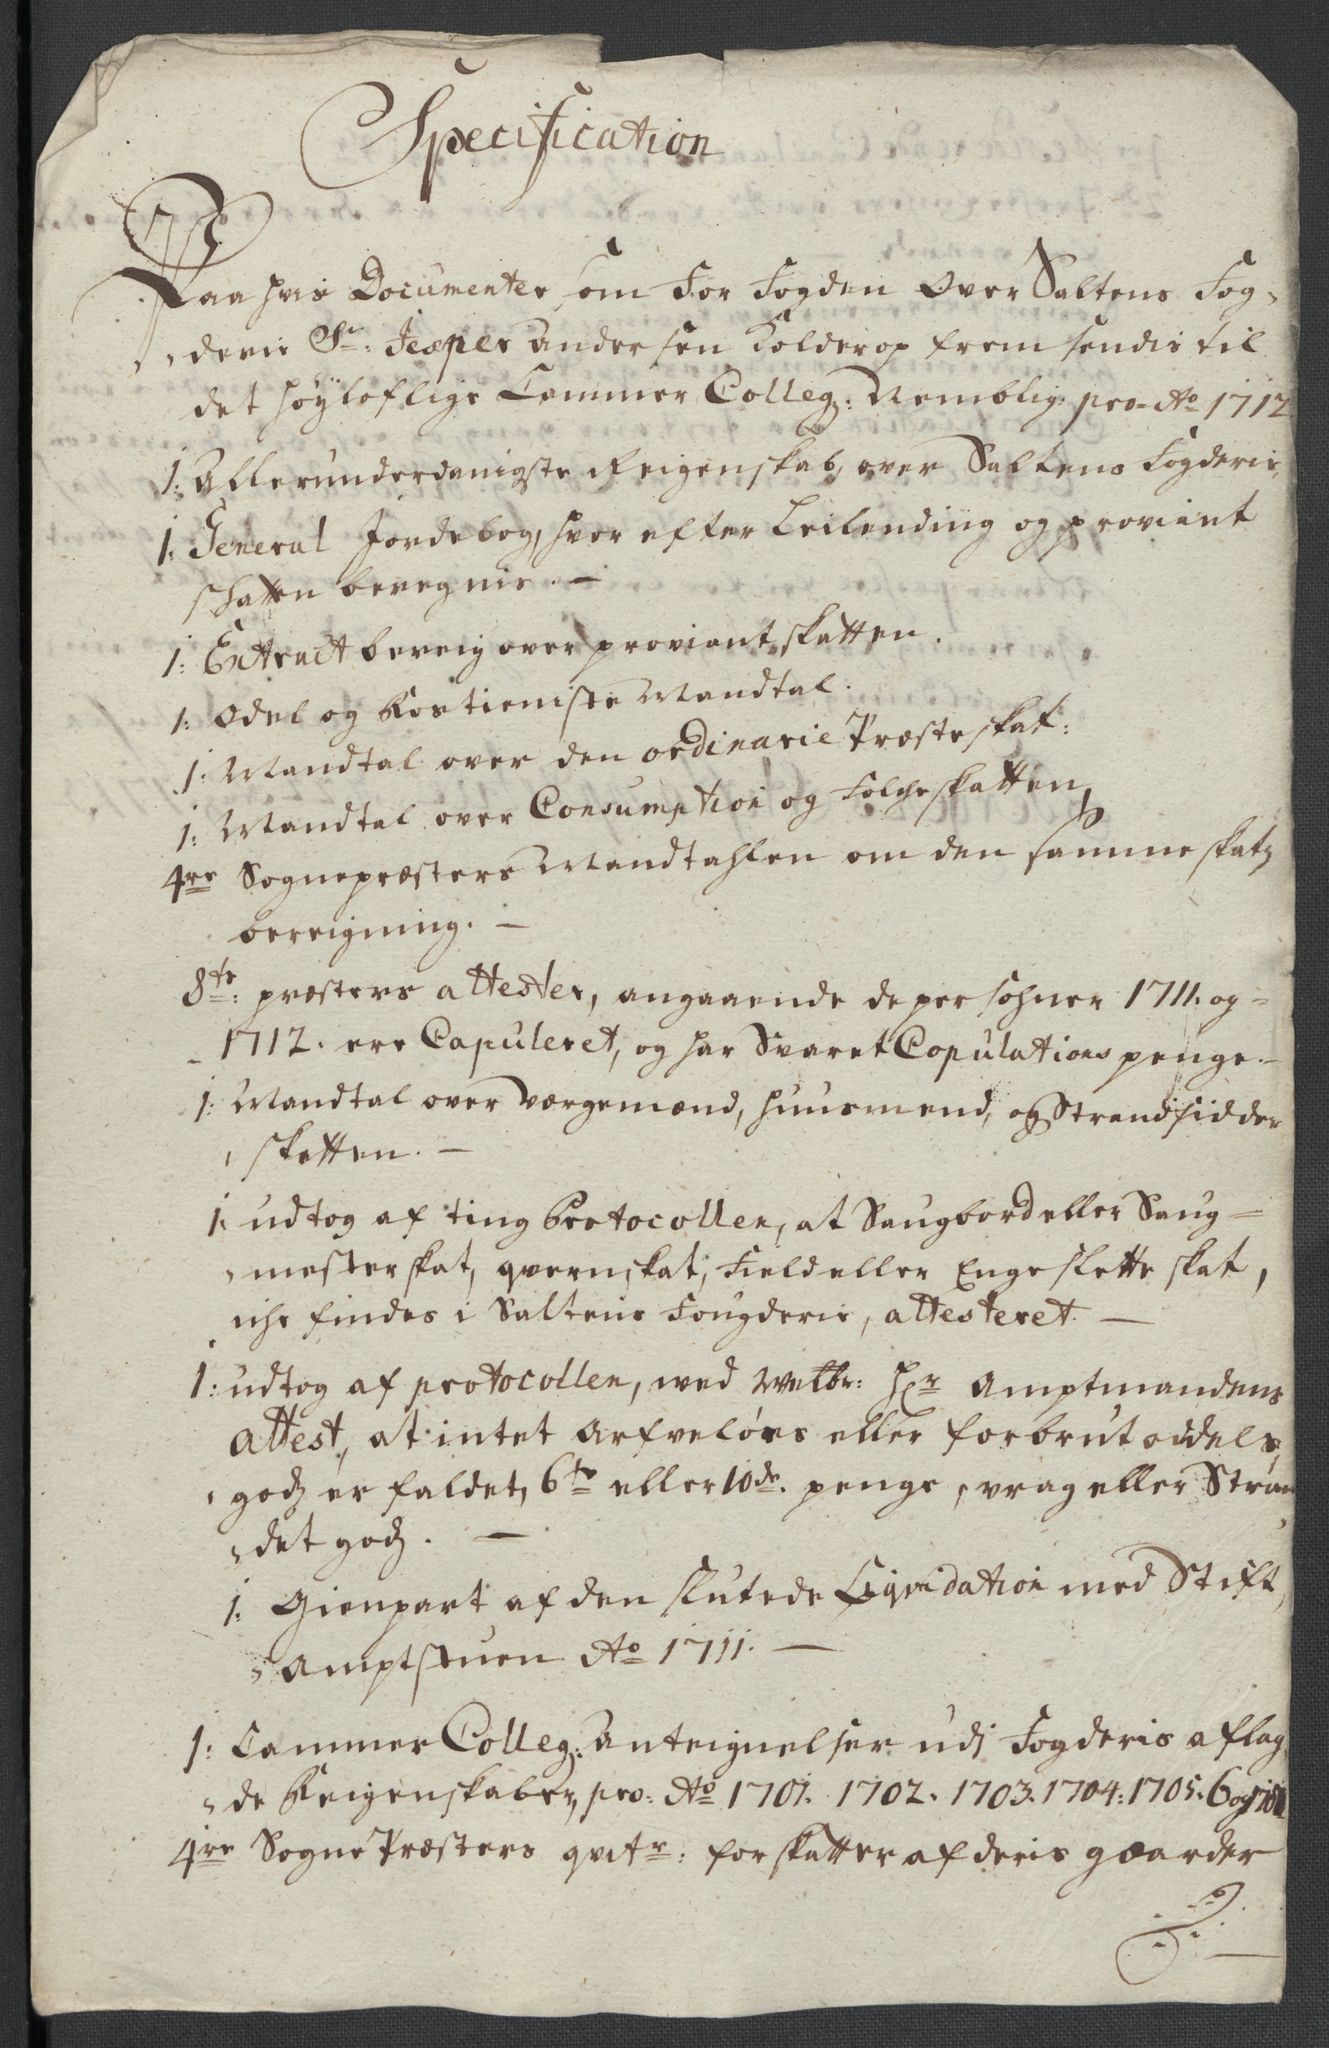 Specification
Paa hvis Documenter som For Fogden Over Saltens Fog-
derie Sr: Jesper Andersen Kolderop frem sendis til
det höÿloflige Cammer Colleg: Nemblig: pro Ao 1712
1: Allerunderdanigste Reigenskab, over Saltens Fogderie,
1: General Jordebog, hvor efter Leilending og proviant
schatten beregnis. —
1: Extract bereig over proviant skatten.
1: Odel og Rostieniste Mandtal.
1: Mandtal over den ordinarie Præsteskat:
1: Mandtal over Consumption og Folcheskatten,
4re Sognepræsters Mandtahlen om den samme skatz
bereigning. —
8te: præsters attester, angaaende de persohner 1711. og=
1712. ere Capuleret, og har Svaret Copulations penge. —
1: Mandtal over vorgemænd, huusmend, og Strandsidder
skatten. —
1: udtog af ting Protocollen, at Saugbord eller Saug=
mesterskat, qvernskat, Field eller Engeslette skat,
iche findes i Saltens Fougderie, attesteret. —
1: udtog af protocollen, med Welbr: Hr Amptmandens
attest, at intet Arfveløes eller forbrut oddels
godz er faldet, 6te eller 10de. penge, vrag eller Stran
det godz. —
1: Gienpart af den slutede Liqvidation med Stift
Amptstuen Ao 1711. —
1: Cammer Colleg: Anteignelser udj Fogderis aflag
de Reigenskaber, pro: Ao 1701. 1702. 1703. 1704: 1705. 6 og
4ire Sogne Præsters qvitr: for skatter af deris gaarder